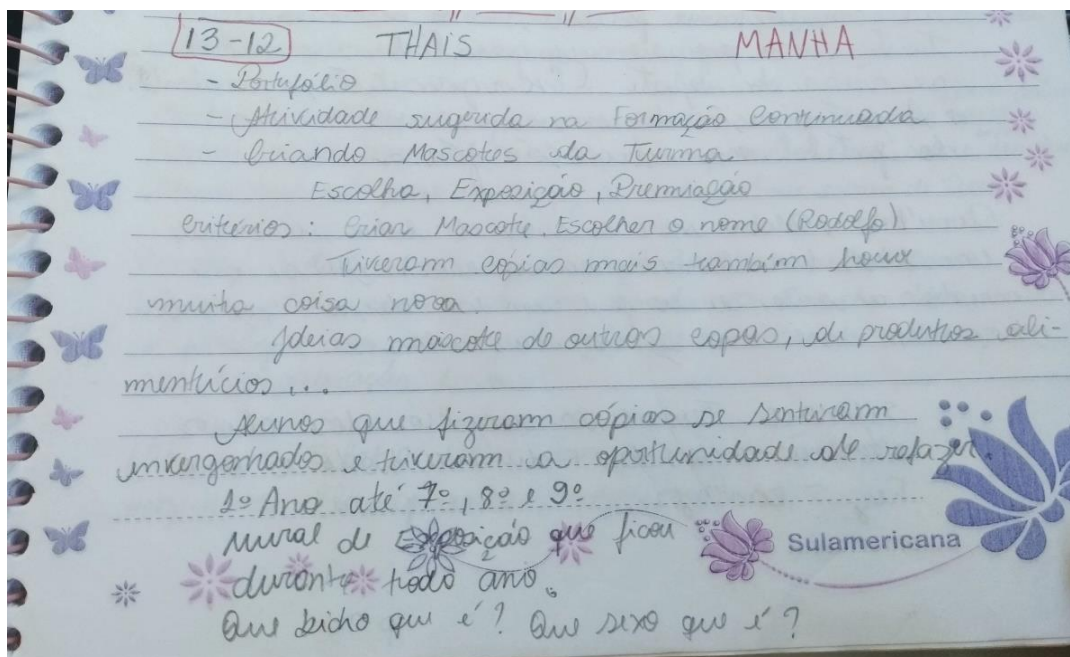 13-12 THAIS MANHA
- Portufólio
- Atividade sugerida na Formação Continuada
- Criando Mascotes da Turma
Escolha, Exposição, Premiação
Critérios: Criar Mascote. Escolher o nome (Rodolfo)
Tiveram cópias mais também houve
muita coisa nova.
Ideias mascote de outras copas, de produtos ali-
mentícios...
Alunos que fizeram cópias se sentiram
envergonhados e tiveram a oportunidade de refazer.
1º Ano até 7º, 8º e 9º
Mural de Exposição que ficou
durante todo ano.
Sulamericana
Que bicho que é? Que sexo que é?